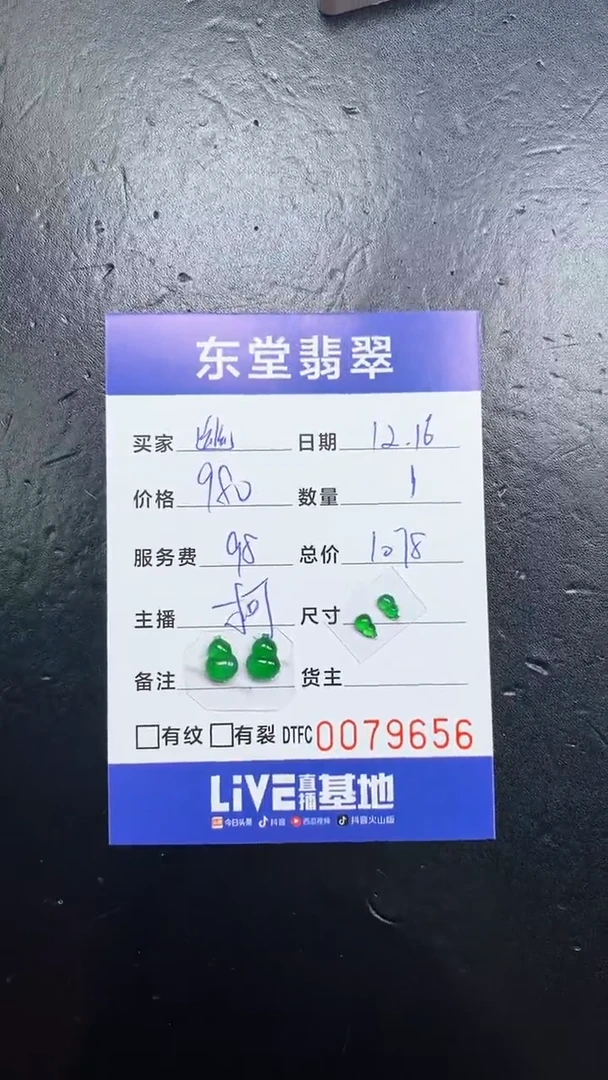 东堂翡翠
买家 日期 12.16
价格 980 数量 1
服务费 98 总价 1078
主播 尺寸
备注 货主
有纹 有裂 DTFC 0079656
LiVE直播基地
今日头条 抖音 西瓜视频 抖音火山版